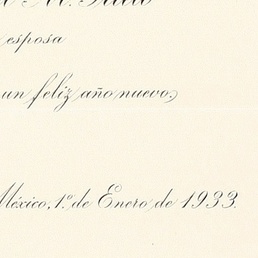 esposa
un feliz año nuevo,
México, 1º de Enero de 1933.